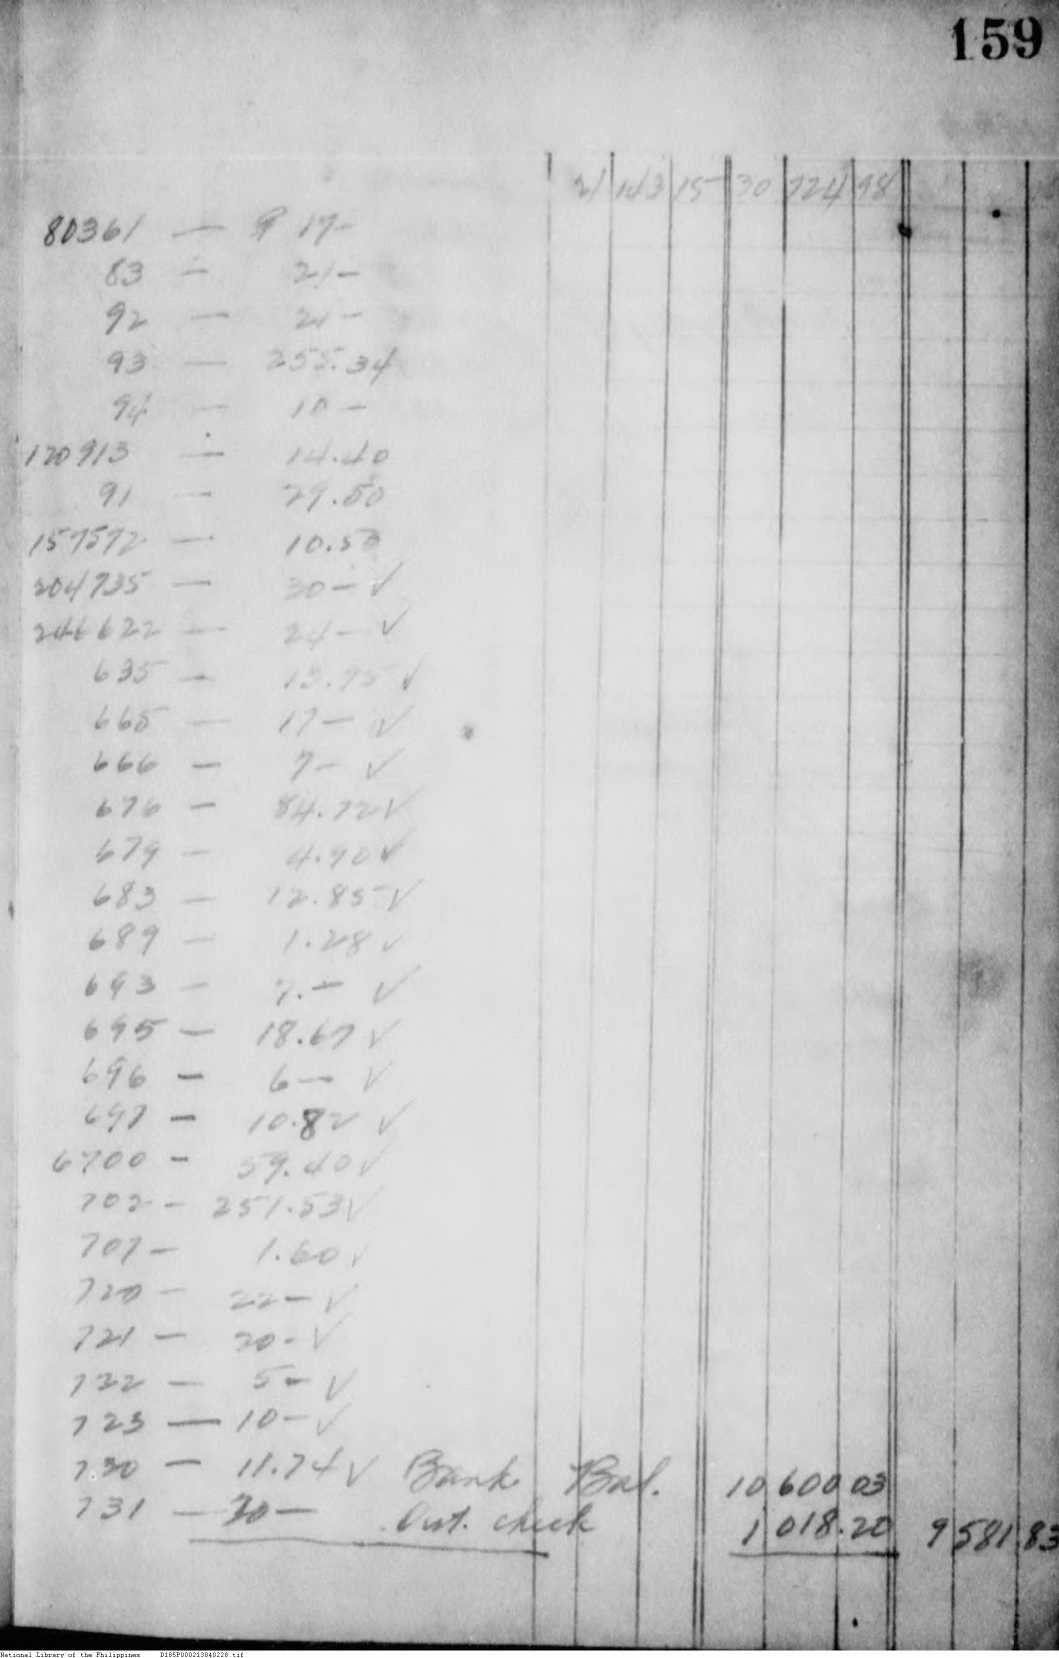 159
21 143 15 30 724 98
80361 — ₱ 17 -
83 - 21 -
92 - 21 -
93 — 255.34
94 — 10 -
120913 — 14.40
91 - 29.50
157572 — 10.50
204735 — 30 - ✓
246622 — 24 - ✓
635 - 13.95 ✓
665 - 17 - ✓
666 - 7 - ✓
676 - 84.72 ✓
679 - 4.90 ✓
683 - 12.85 ✓
689 - 1.28 ✓
693 - 7. - ✓
695 - 18.67 ✓
696 - 6 - ✓
697 - 10.82 ✓
6700 - 59.40 ✓
702 - 251.53 ✓
707 - 1.60 ✓
720 - 22 - ✓
721 - 20 - ✓
722 - 5 - ✓
723 — 10 - ✓
730 - 11.74 ✓ Bank Bal. 10 600 03
731 - 30 - Out. check 1 018.20 9 581 83
National Library of the Philippines D185P000213040228.tif